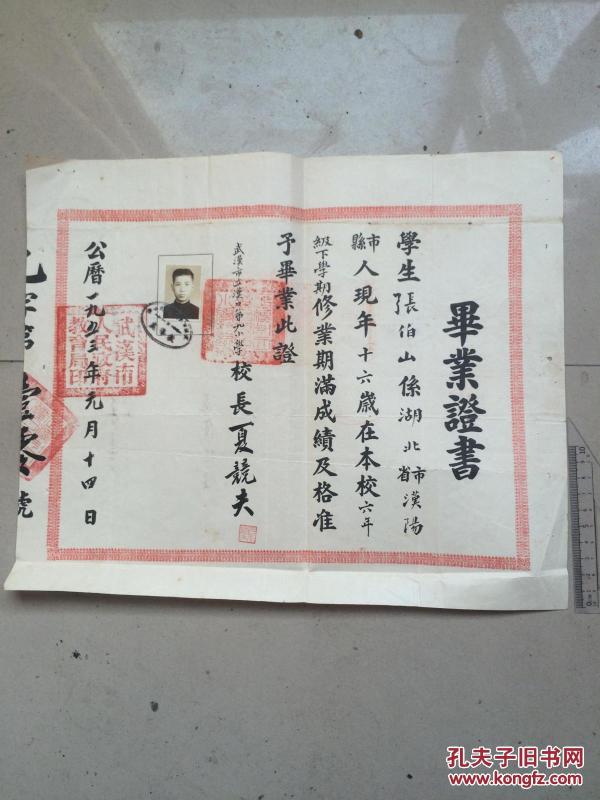 畢業證書
學生張伯山係湖北省市漢陽
市縣人現年十六歲在本校六年
級下學期修業期滿成績及格准
予畢業此證
武漢市立漢口第九小學校長夏競夫
公曆一九五三年元月十四日
武漢市人民政府教育局印
號
孔夫子旧书网
www.kongfz.com